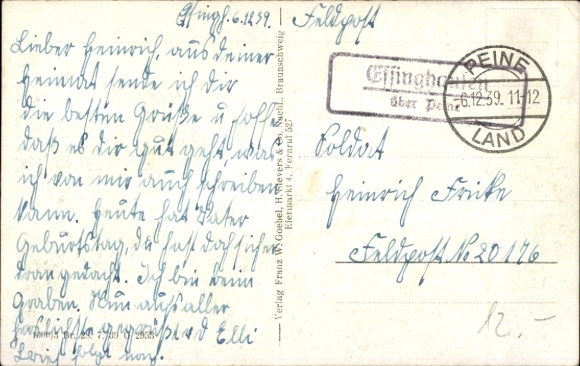 Essingh. 6.12.39.
Lieber Heinrich, aus deiner
Heimat sende ich dir
die besten Grüße u hoffe
daß es dir gut geht, was
ich von mir auch schreiben
kann. Heute hat Vater
Geburtstag, du hast doch sicher
dran gedacht. Ich bin beim
Graben. Nun aufs aller
herzlichste gegrüßt v d Elli
Brief folgt nach.
Verlag Franz W. Goebel, H. Sievers & Co. Nachf., Braunschweig
Eiermarkt 4, Fernruf 527
Feldpost
Essinghausen
über Peine
PEINE
6.12.39. 11-12
LAND
Soldat
Heinrich Fricke
Feldpost No 20176
12.-